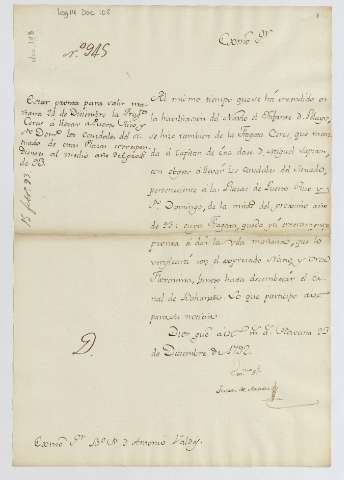 Leg 14 Doc 108
Nº 945
Exmo. Sr.
Estar pronta para salir ma-
ñana 24 de Diciembre la Frag.ta
Ceres á llevar a Puerto Rico, y
Sto. Domo. los caudales del si-
tuado de estas Plazas correspon-
dientes al medio año
de 93.
Al mismo tiempo que se ha atendido en
la habilitacion del Navio el Infante D. Pelayo,
se hizo tambien de la Fragata Ceres, que man-
da el Capitan de
con objeto á llevar los Caudales del situado,
perteneciente á las Plazas de Puerto Rico y
Sto. Domingo, de la mitad del proximo año
de 93: cuya Fragata queda
pronta á dár la vela mañana, que lo
verificará con el expresado Navio, y el de Sn.
Geronimo, hasta desembocar el Ca-
nal de Bahama. Lo que participo á V.E.
para su noticia.
Dios gue. a V.E. ms. as. Havana 23
de Diciembre de 1792.
Exmo. Sr.
Exmo. Sr. Bo. Fr. D. Antonio Valdés.